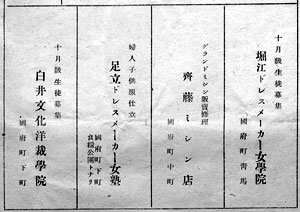 十月級生徒募集
堀江ドレスメーカー女學院
國府町青馬
グランドミシン販賣修理
齊藤ミシン店
國府町中町
婦人子供服仕立
足立ドレスメーカー女塾
國府町下町
食糧公團トナリ
十月級生徒募集
白井文化洋裁學院
國府町下町